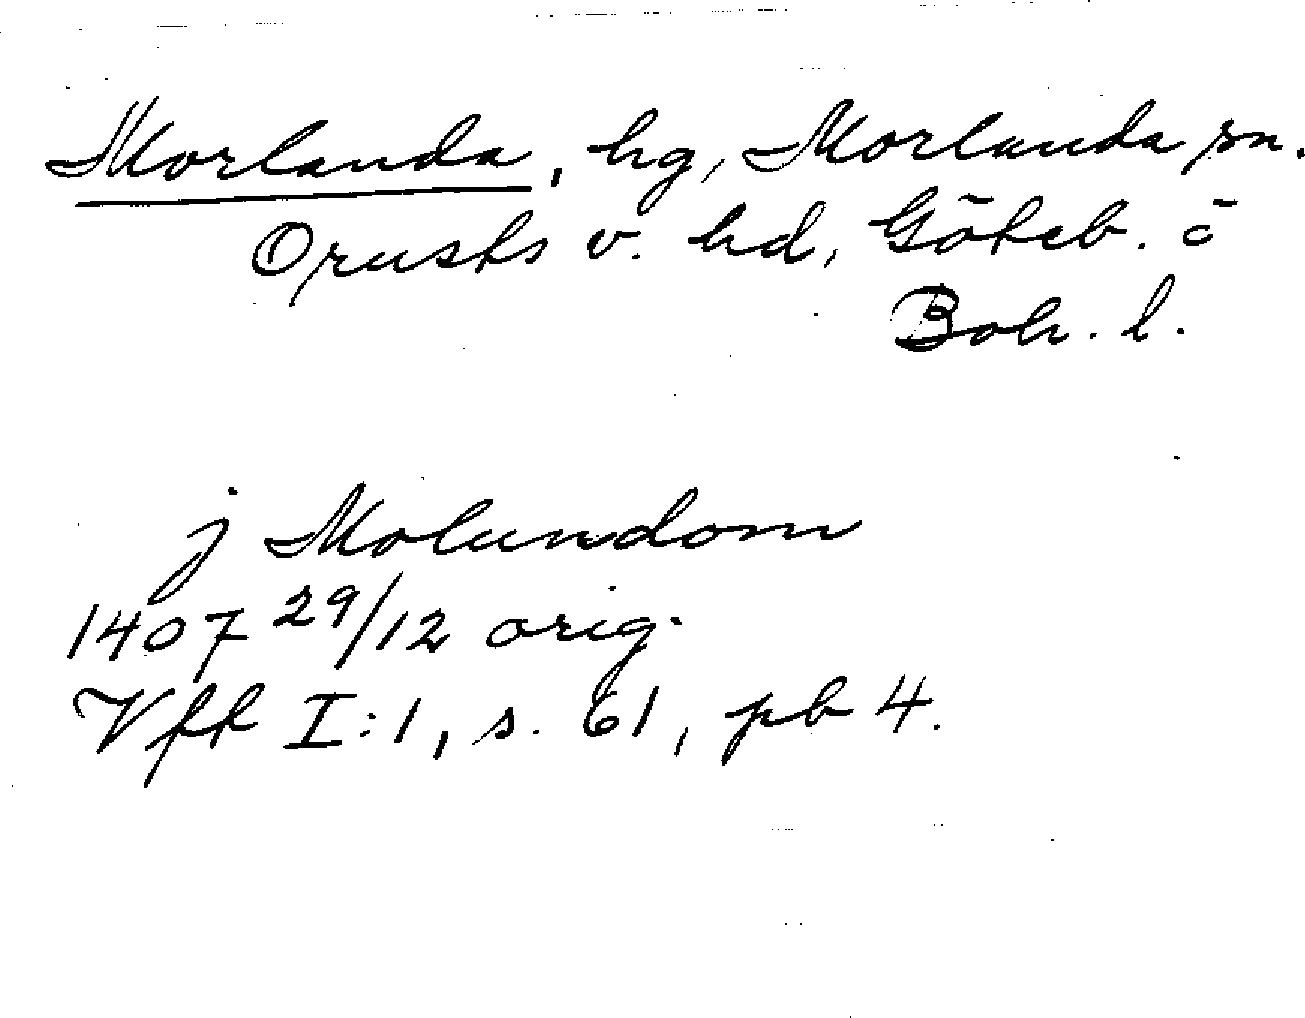 Morlanda, hg, Morlanda sn.
Orusts v. hd, Göteb. o
Boh. l.
j Molundom
1407 29/12 orig.
Vff I:1, s. 61, pb 4.